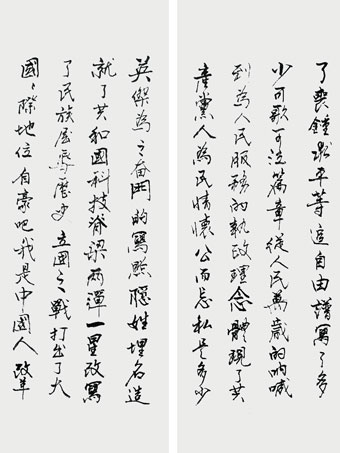 了喪鐘求平等追自由譜寫了多
少可歌可泣篇章從人民萬歲的吶喊
到為人民服務的執政理念體現了共
產黨人為民情懷公而忘私是多少
英傑為之奮鬥的寫照隱姓埋名造
就了共和國科技脊梁兩彈一星改寫
了民族屈辱歷史立國之戰打出了大
國國際地位自豪吧我是中國人改革